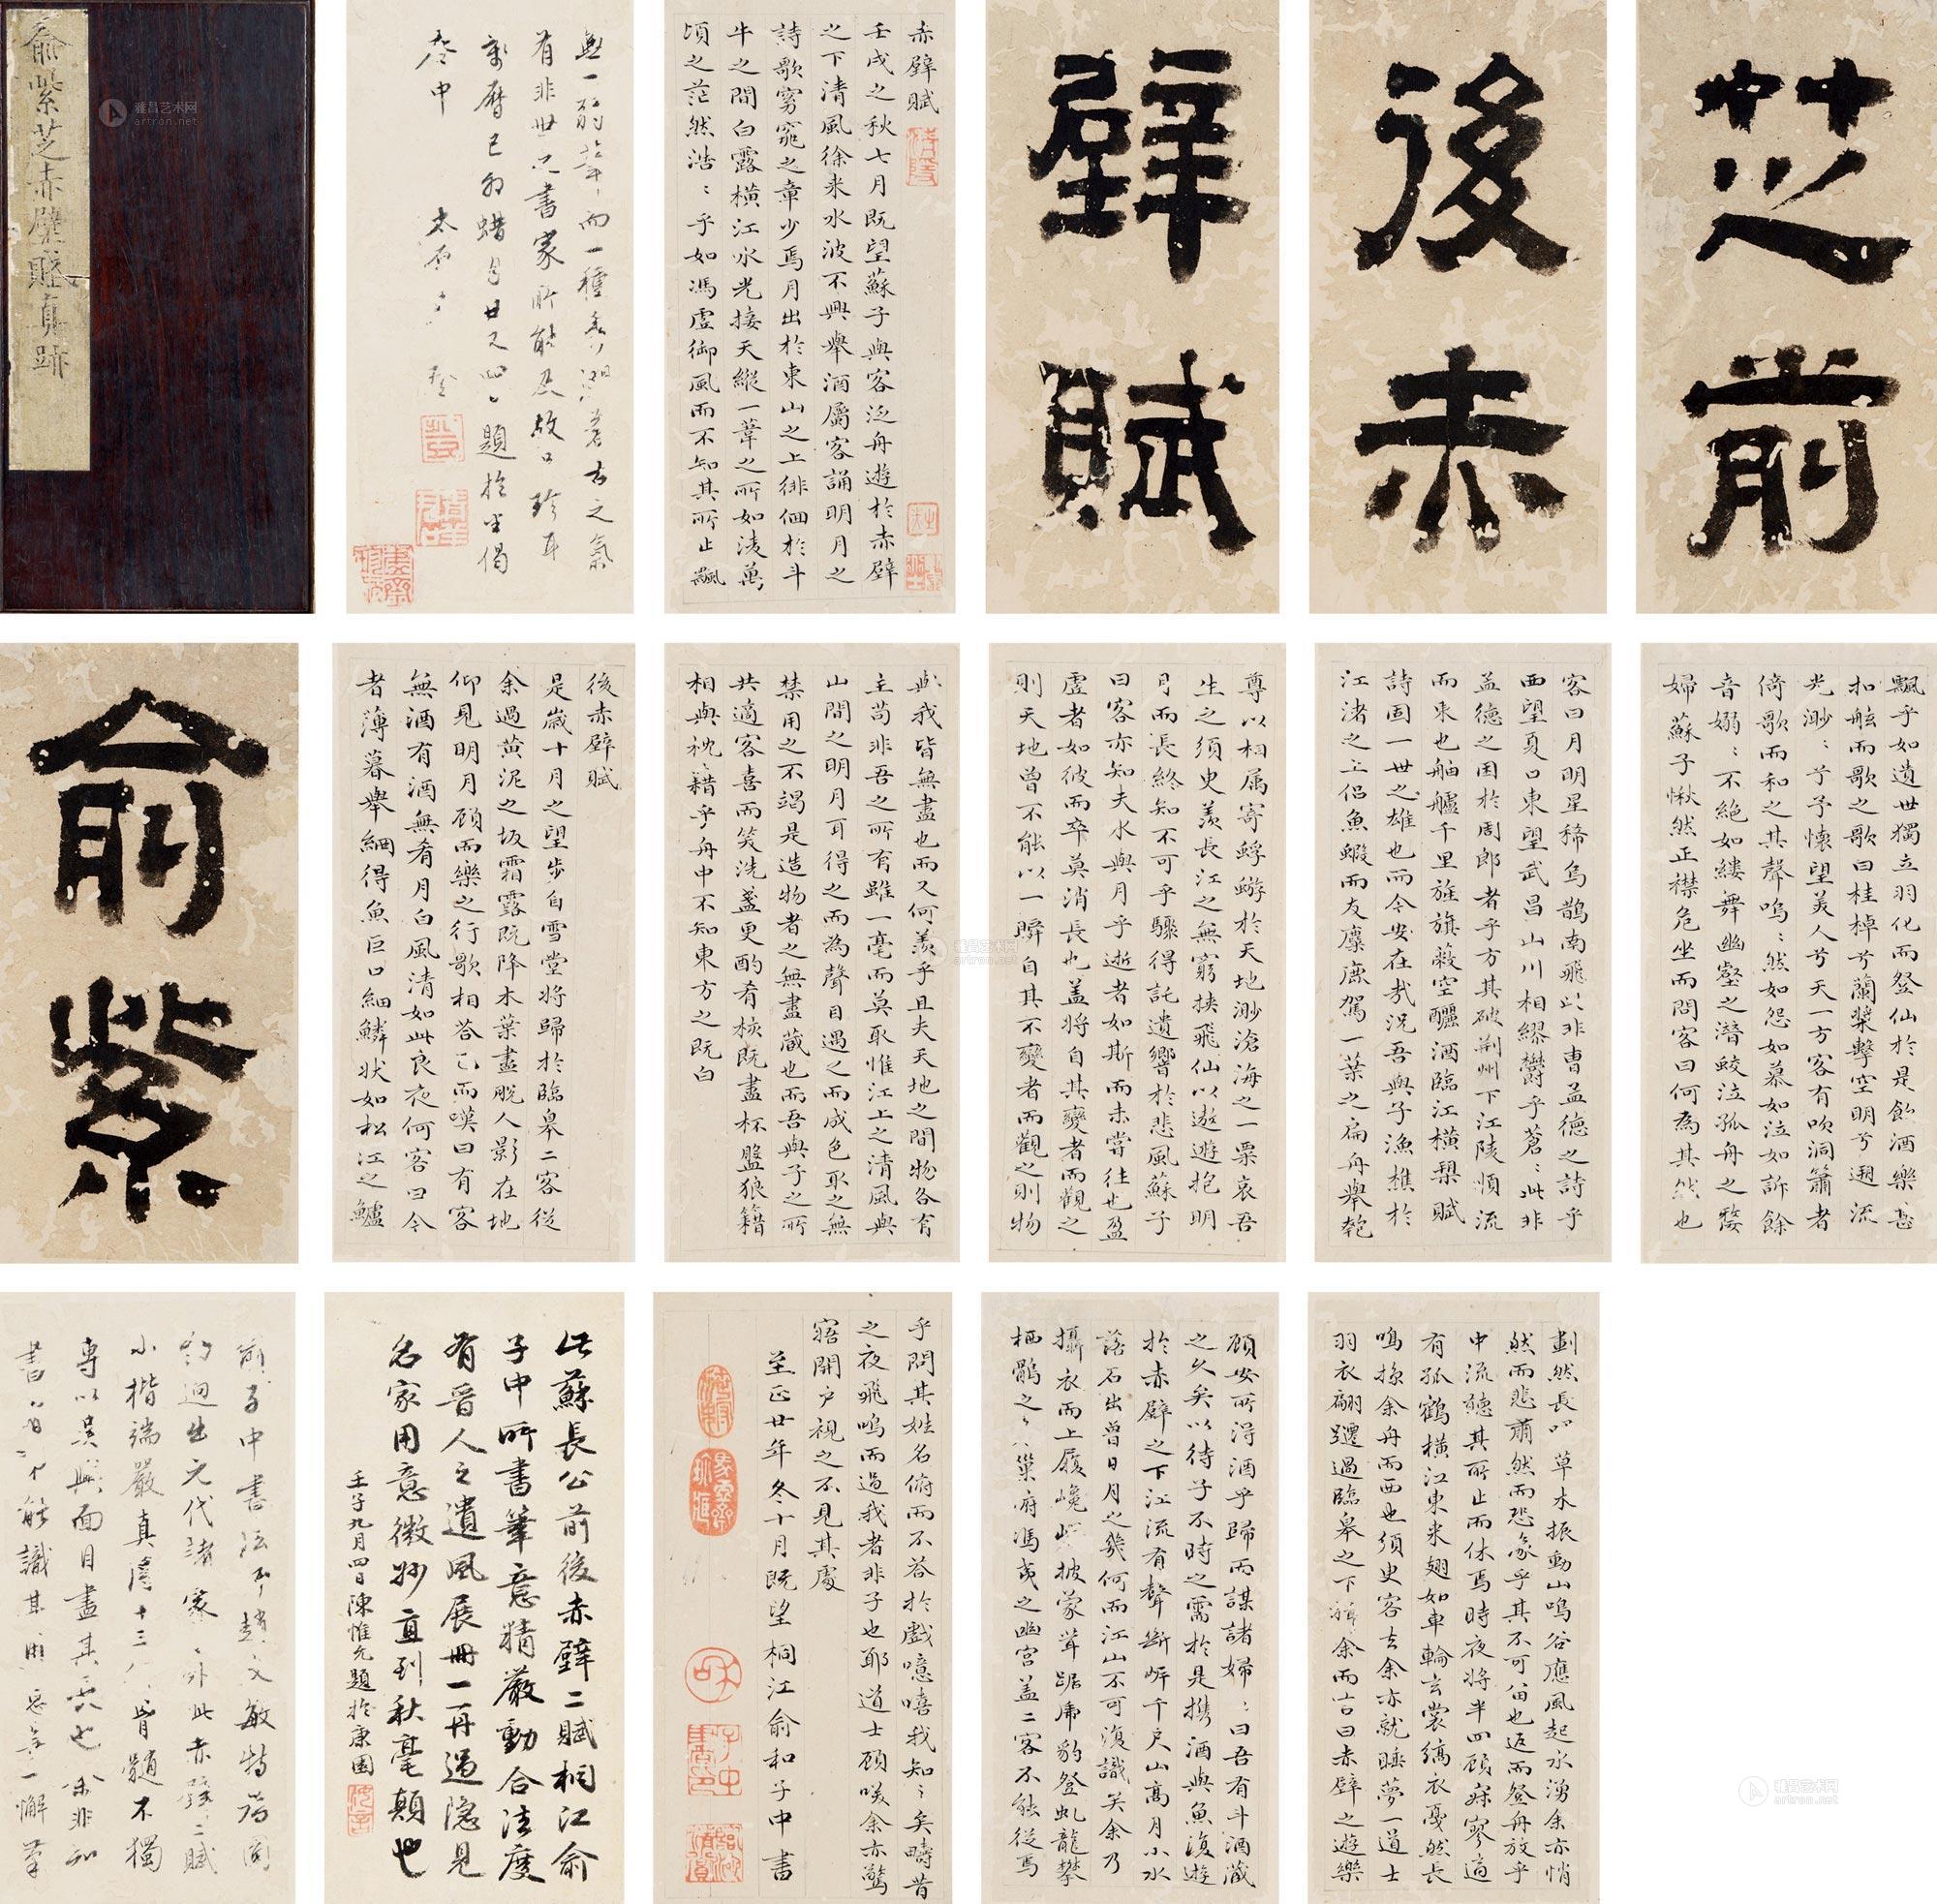 俞紫芝赤壁賦真跡
俞紫
芝前
後赤
壁賦
赤壁賦
壬戌之秋七月既望蘇子與客泛舟遊於赤壁
之下清風徐来水波不興舉酒屬客誦明月之
詩歌窈窕之章少焉月出於東山之上徘徊於斗
牛之間白露橫江水光接天縱一葦之所如凌萬
頃之茫然浩〻乎如馮虛御風而不知其所止飄
飄乎如遺世獨立羽化而登仙於是飲酒樂甚
扣舷而歌之歌曰桂棹兮蘭槳擊空明兮遡流
光渺〻兮予懷望美人兮天一方客有吹洞簫者
倚歌而和之其聲嗚〻然如怨如慕如泣如訴餘
音嫋〻不絕如縷舞幽壑之潛蛟泣孤舟之嫠
婦蘇子愀然正襟危坐而問客曰何為其然也
客曰月明星稀烏鵲南飛此非曹孟德之詩乎
西望夏口東望武昌山川相繆鬱乎蒼〻此非
孟德之困於周郎者乎方其破荊州下江陵順流
而東也舳艫千里旌旗蔽空釃酒臨江橫槊賦
詩固一世之雄也而今安在哉況吾與子漁樵於
江渚之上侶魚蝦而友麋鹿駕一葉之扁舟舉匏
尊以相属寄蜉蝣於天地渺滄海之一粟哀吾
生之須臾羨長江之無窮挾飛仙以遨遊抱明
月而長終知不可乎驟得託遺響於悲風蘇子
曰客亦知夫水與月乎逝者如斯而未嘗往也盈
虛者如彼而卒莫消長也盖將自其變者而觀之
則天地曾不能以一瞬自其不變者而觀之則物
與我皆無盡也而又何羨乎且夫天地之間物各有
主苟非吾之所有雖一毫而莫取惟江上之清風與
山間之明月耳得之而為聲目遇之而成色取之無
禁用之不竭是造物者之無盡蔵也而吾與子之所
共適客喜而笑洗盞更酌肴核既盡杯盤狼籍
相與枕籍乎舟中不知東方之既白
後赤壁賦
是歲十月之望步自雪堂將歸於臨皋二客從
余過黄泥之坂霜露既降木葉盡脫人影在地
仰見明月顧而樂之行歌相荅已而嘆曰有客
無酒有酒無肴月白風清如此良夜何客曰今
者薄暮舉網得魚巨口細鱗狀如松江之鱸
顧安所得酒乎歸而謀諸婦〻曰吾有斗酒蔵
之久矣以待子不時之需於是攜酒與魚復遊
於赤壁之下江流有聲斷岸千尺山高月小水
落石出曾日月之幾何而江山不可復識矣余乃
攝衣而上履巉巖披蒙茸踞虎豹登虬龍攀
栖鶻之危巢府馮夷之幽宫盖二客不能從焉
劃然長嘯草木振動山鳴谷應風起水湧余亦悄
然而悲肅然而恐凛乎其不可留也返而登舟放乎
中流聽其所止而休焉時夜將半四顧寂寥適
有孤鶴橫江東来翅如車輪玄裳縞衣戛然長
鳴掠余舟而西也須臾客去余亦就睡夢一道士
羽衣翩躚過臨皋之下揖余而言曰赤壁之遊樂
乎問其姓名俯而不荅於戲噫嘻我知〻矣疇昔
之夜飛鳴而過我者非子也耶道士顧咲余亦驚
寤開户視之不見其處
至正廿年冬十月既望桐江俞和子中書
此蘇長公前後赤壁二賦桐江俞
子中所書筆意精嚴動合法度
有晉人之遺風展冊一再過隐見
名家用意微妙直到秋毫顛也
壬子九月四日陳惟允題於康園
俞子中書法
迥出元代諸家〻外此赤壁二賦
小楷端嚴真
專以吳興面目盡其
書
無一節筆〻而一種
有非世人書家所能及故
萬曆己
太原